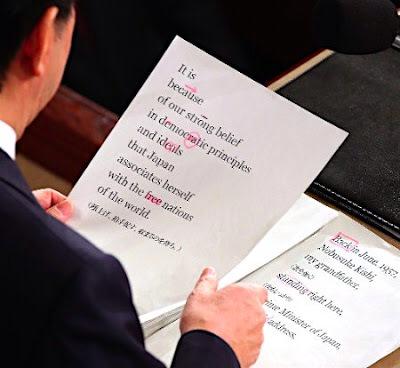 It is
because
of our strong belief
in democratic principles
and ideals
that Japan
associates herself
with the free nations
of the world.
Back in June, 1957,
Nobusuke Kishi,
my grandfather,
standing right here,
Minister of Japan,
address.